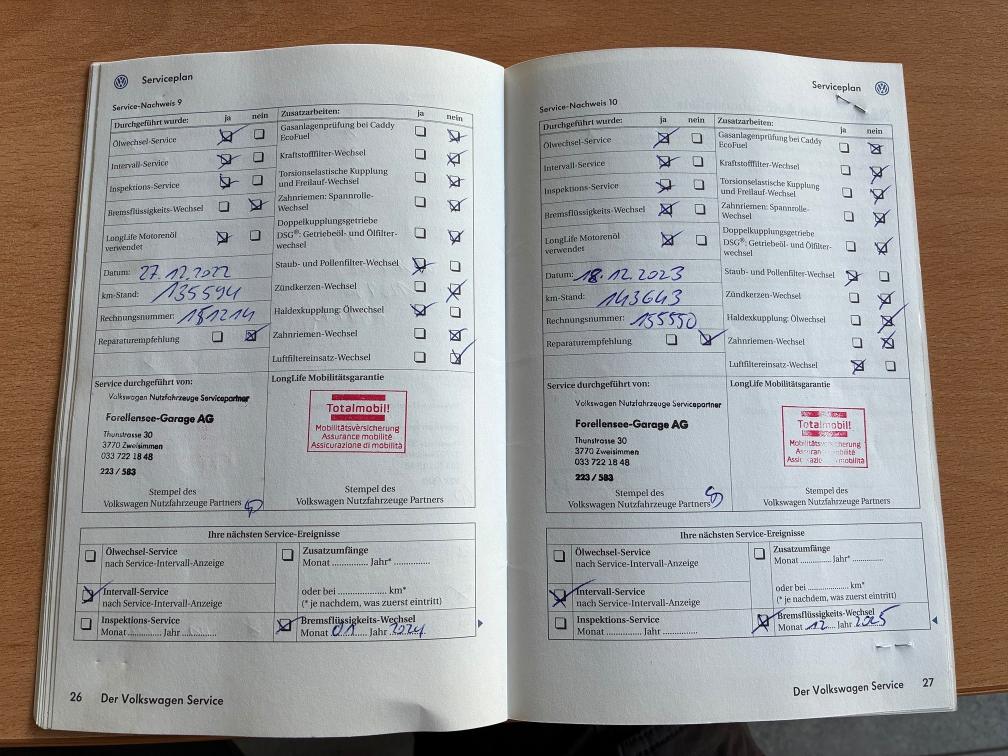 Serviceplan
Service-Nachweis 9
Durchgeführt wurde: ja nein
Ölwechsel-Service
Intervall-Service
Inspektions-Service
Bremsflüssigkeits-Wechsel
LongLife Motorenöl
verwendet
Datum: 27.12.2022
km-Stand: 135594
Rechnungsnummer: 151214
Reparaturempfehlung
Zusatzarbeiten: ja nein
Gasanlagenprüfung bei Caddy
EcoFuel
Kraftstofffilter-Wechsel
Torsionselastische Kupplung
und Freilauf-Wechsel
Zahnriemen: Spannrolle-
Wechsel
Doppelkupplungsgetriebe
DSG®: Getriebeöl- und Ölfilter-
wechsel
Staub- und Pollenfilter-Wechsel
Zündkerzen-Wechsel
Haldexkupplung: Ölwechsel
Zahnriemen-Wechsel
Luftfiltereinsatz-Wechsel
Service durchgeführt von:
Volkswagen Nutzfahrzeuge Servicepartner
Forellensee-Garage AG
Thunstrasse 30
3770 Zweisimmen
033 722 18 48
223 / 583
Stempel des
Volkswagen Nutzfahrzeuge Partners
LongLife Mobilitätsgarantie
Totalmobil!
Mobilitätsversicherung
Assurance mobilité
Assicurazione di mobilità
Stempel des
Volkswagen Nutzfahrzeuge Partners
Ihre nächsten Service-Ereignisse
Ölwechsel-Service
nach Service-Intervall-Anzeige
Intervall-Service
nach Service-Intervall-Anzeige
Inspektions-Service
Monat ............ Jahr ............
Zusatzumfänge
Monat ............ Jahr* ............
oder bei .................... km*
(* je nachdem, was zuerst eintritt)
Bremsflüssigkeits-Wechsel
Monat 01 Jahr 2024
26 Der Volkswagen Service
Serviceplan
Service-Nachweis 10
Durchgeführt wurde: ja nein
Ölwechsel-Service
Intervall-Service
Inspektions-Service
Bremsflüssigkeits-Wechsel
LongLife Motorenöl
verwendet
Datum: 18.12.2023
km-Stand: 143643
Rechnungsnummer: 155550
Reparaturempfehlung
Zusatzarbeiten: ja nein
Gasanlagenprüfung bei Caddy
EcoFuel
Kraftstofffilter-Wechsel
Torsionselastische Kupplung
und Freilauf-Wechsel
Zahnriemen: Spannrolle-
Wechsel
Doppelkupplungsgetriebe
DSG®: Getriebeöl- und Ölfilter-
wechsel
Staub- und Pollenfilter-Wechsel
Zündkerzen-Wechsel
Haldexkupplung: Ölwechsel
Zahnriemen-Wechsel
Luftfiltereinsatz-Wechsel
Service durchgeführt von:
Volkswagen Nutzfahrzeuge Servicepartner
Forellensee-Garage AG
Thunstrasse 30
3770 Zweisimmen
033 722 18 48
223 / 583
Stempel des
Volkswagen Nutzfahrzeuge Partners
LongLife Mobilitätsgarantie
Totalmobil!
Stempel des
Volkswagen Nutzfahrzeuge Partners
Ihre nächsten Service-Ereignisse
Ölwechsel-Service
nach Service-Intervall-Anzeige
Intervall-Service
nach Service-Intervall-Anzeige
Inspektions-Service
Monat ............ Jahr ............
Zusatzumfänge
Monat ............ Jahr* ............
oder bei .................... km*
(* je nachdem, was zuerst eintritt)
Bremsflüssigkeits-Wechsel
Monat 12 Jahr 2025
Der Volkswagen Service 27